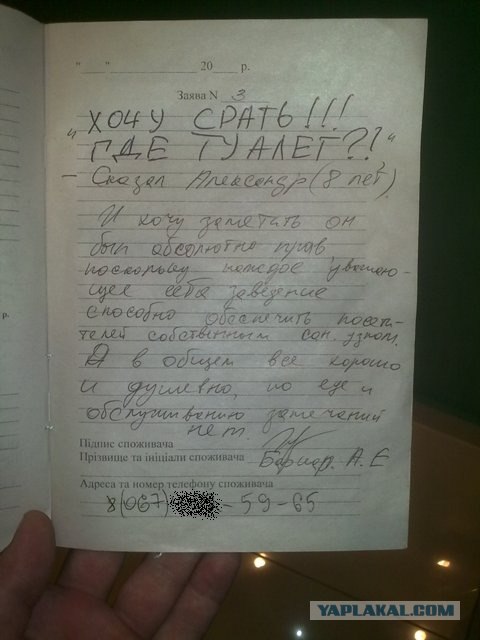 "___" ____________ 20___ р.
Заява N 3
"ХОЧУ СРАТЬ!!!
ГДЕ ТУАЛЕТ?!"
– Сказал Александр (8 лет)
И хочу заметить он
был абсолютно прав
поскольку каждое уважаю-
щее себя заведение
способно обеспечить посети-
телей собственным сан. узлом.
А в общем все хорошо
и душевно, по еде и
обслуживанию замечаний
нет
Підпис споживача
Прізвище та ініціали споживача А. Е
Адреса та номер телефону споживача
8(067) – 59 – 65
YAPLAKAL.COM